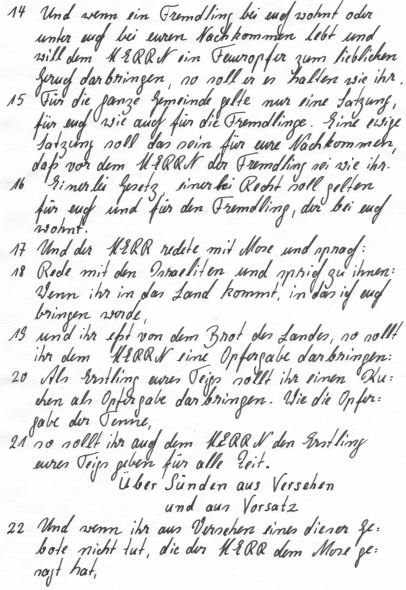 14 Und wenn ein Fremdling bei euch wohnt oder
unter euch bei euren Nachkommen lebt und
will dem HERRN ein Feueropfer zum lieblichen
Geruch darbringen, so soll er es halten wie ihr.
15 Für die ganze Gemeinde gelte nur eine Satzung,
für euch wie auch für die Fremdlinge. Eine ewige
Satzung soll das sein für eure Nachkommen,
daß vor dem HERRN der Fremdling sei wie ihr.
16 Einerlei Gesetz, einerlei Recht soll gelten
für euch und für den Fremdling, der bei euch
wohnt.
17 Und der HERR redete mit Mose und sprach:
18 Rede mit den Israeliten und sprich zu ihnen:
Wenn ihr in das Land kommt, in das ich euch
bringen werde,
19 und ihr eßt von dem Brot des Landes, so sollt
ihr dem HERRN eine Opfergabe darbringen:
20 Als Erstling eures Teigs sollt ihr einen Ku=
chen als Opfergabe darbringen. Wie die Opfer=
gabe der Tenne,
21 so sollt ihr auch dem HERRN den Erstling
eures Teigs geben für alle Zeit.
Über Sünden aus Versehen
und aus Vorsatz
22 Und wenn ihr aus Versehen eines dieser Ge=
bote nicht tut, die der HERR dem Mose ge=
sagt hat,